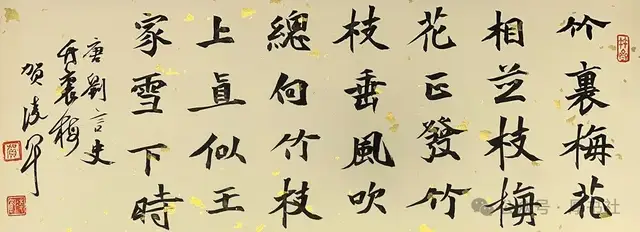 竹裏梅花
相並枝梅
花正發竹
枝垂風吹
總向竹枝
上直似王
家雪下時
唐劉言史
竹裏梅